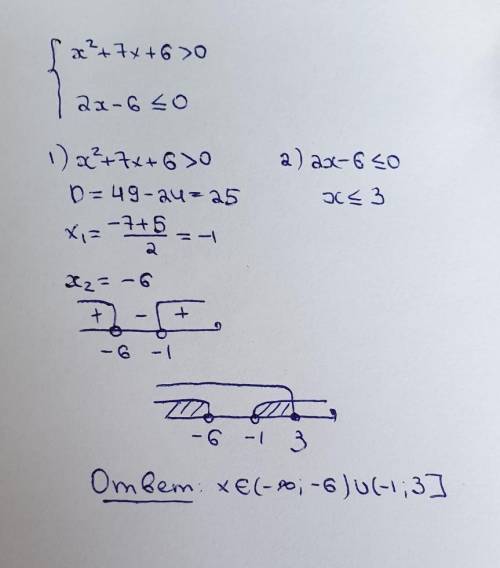 { x²+7x+6>0
2x-6≤0
1) x²+7x+6>0
D=49-24=25
x₁=(-7+5)/2=-1
x₂=-6
2) 2x-6≤0
x≤3
+ - +
-6 -1
-6 -1 3
Ответ: x∈(-∞;-6)∪(-1;3]